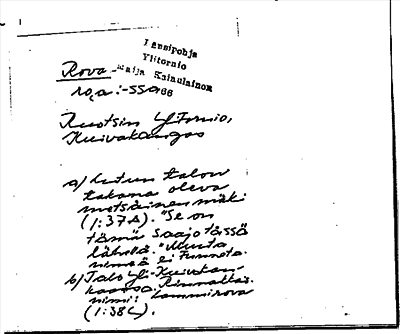 Länsipohja
Ylitornio
Maija Kaiaulainon
66
Rova
roa: -ssa
Ruotsin Ylitornio,
Kuivakangas
a) talon
takana oleva
metsäinen mäki
(1:37A). "Se on
tämä Saajo tässä
lähellä." Muuta
nimeä ei tunneta.
b) Talo Yli-Kuivakan-
kaassa. Rinnakkais-
nimi: Lammirova
(1:38C).